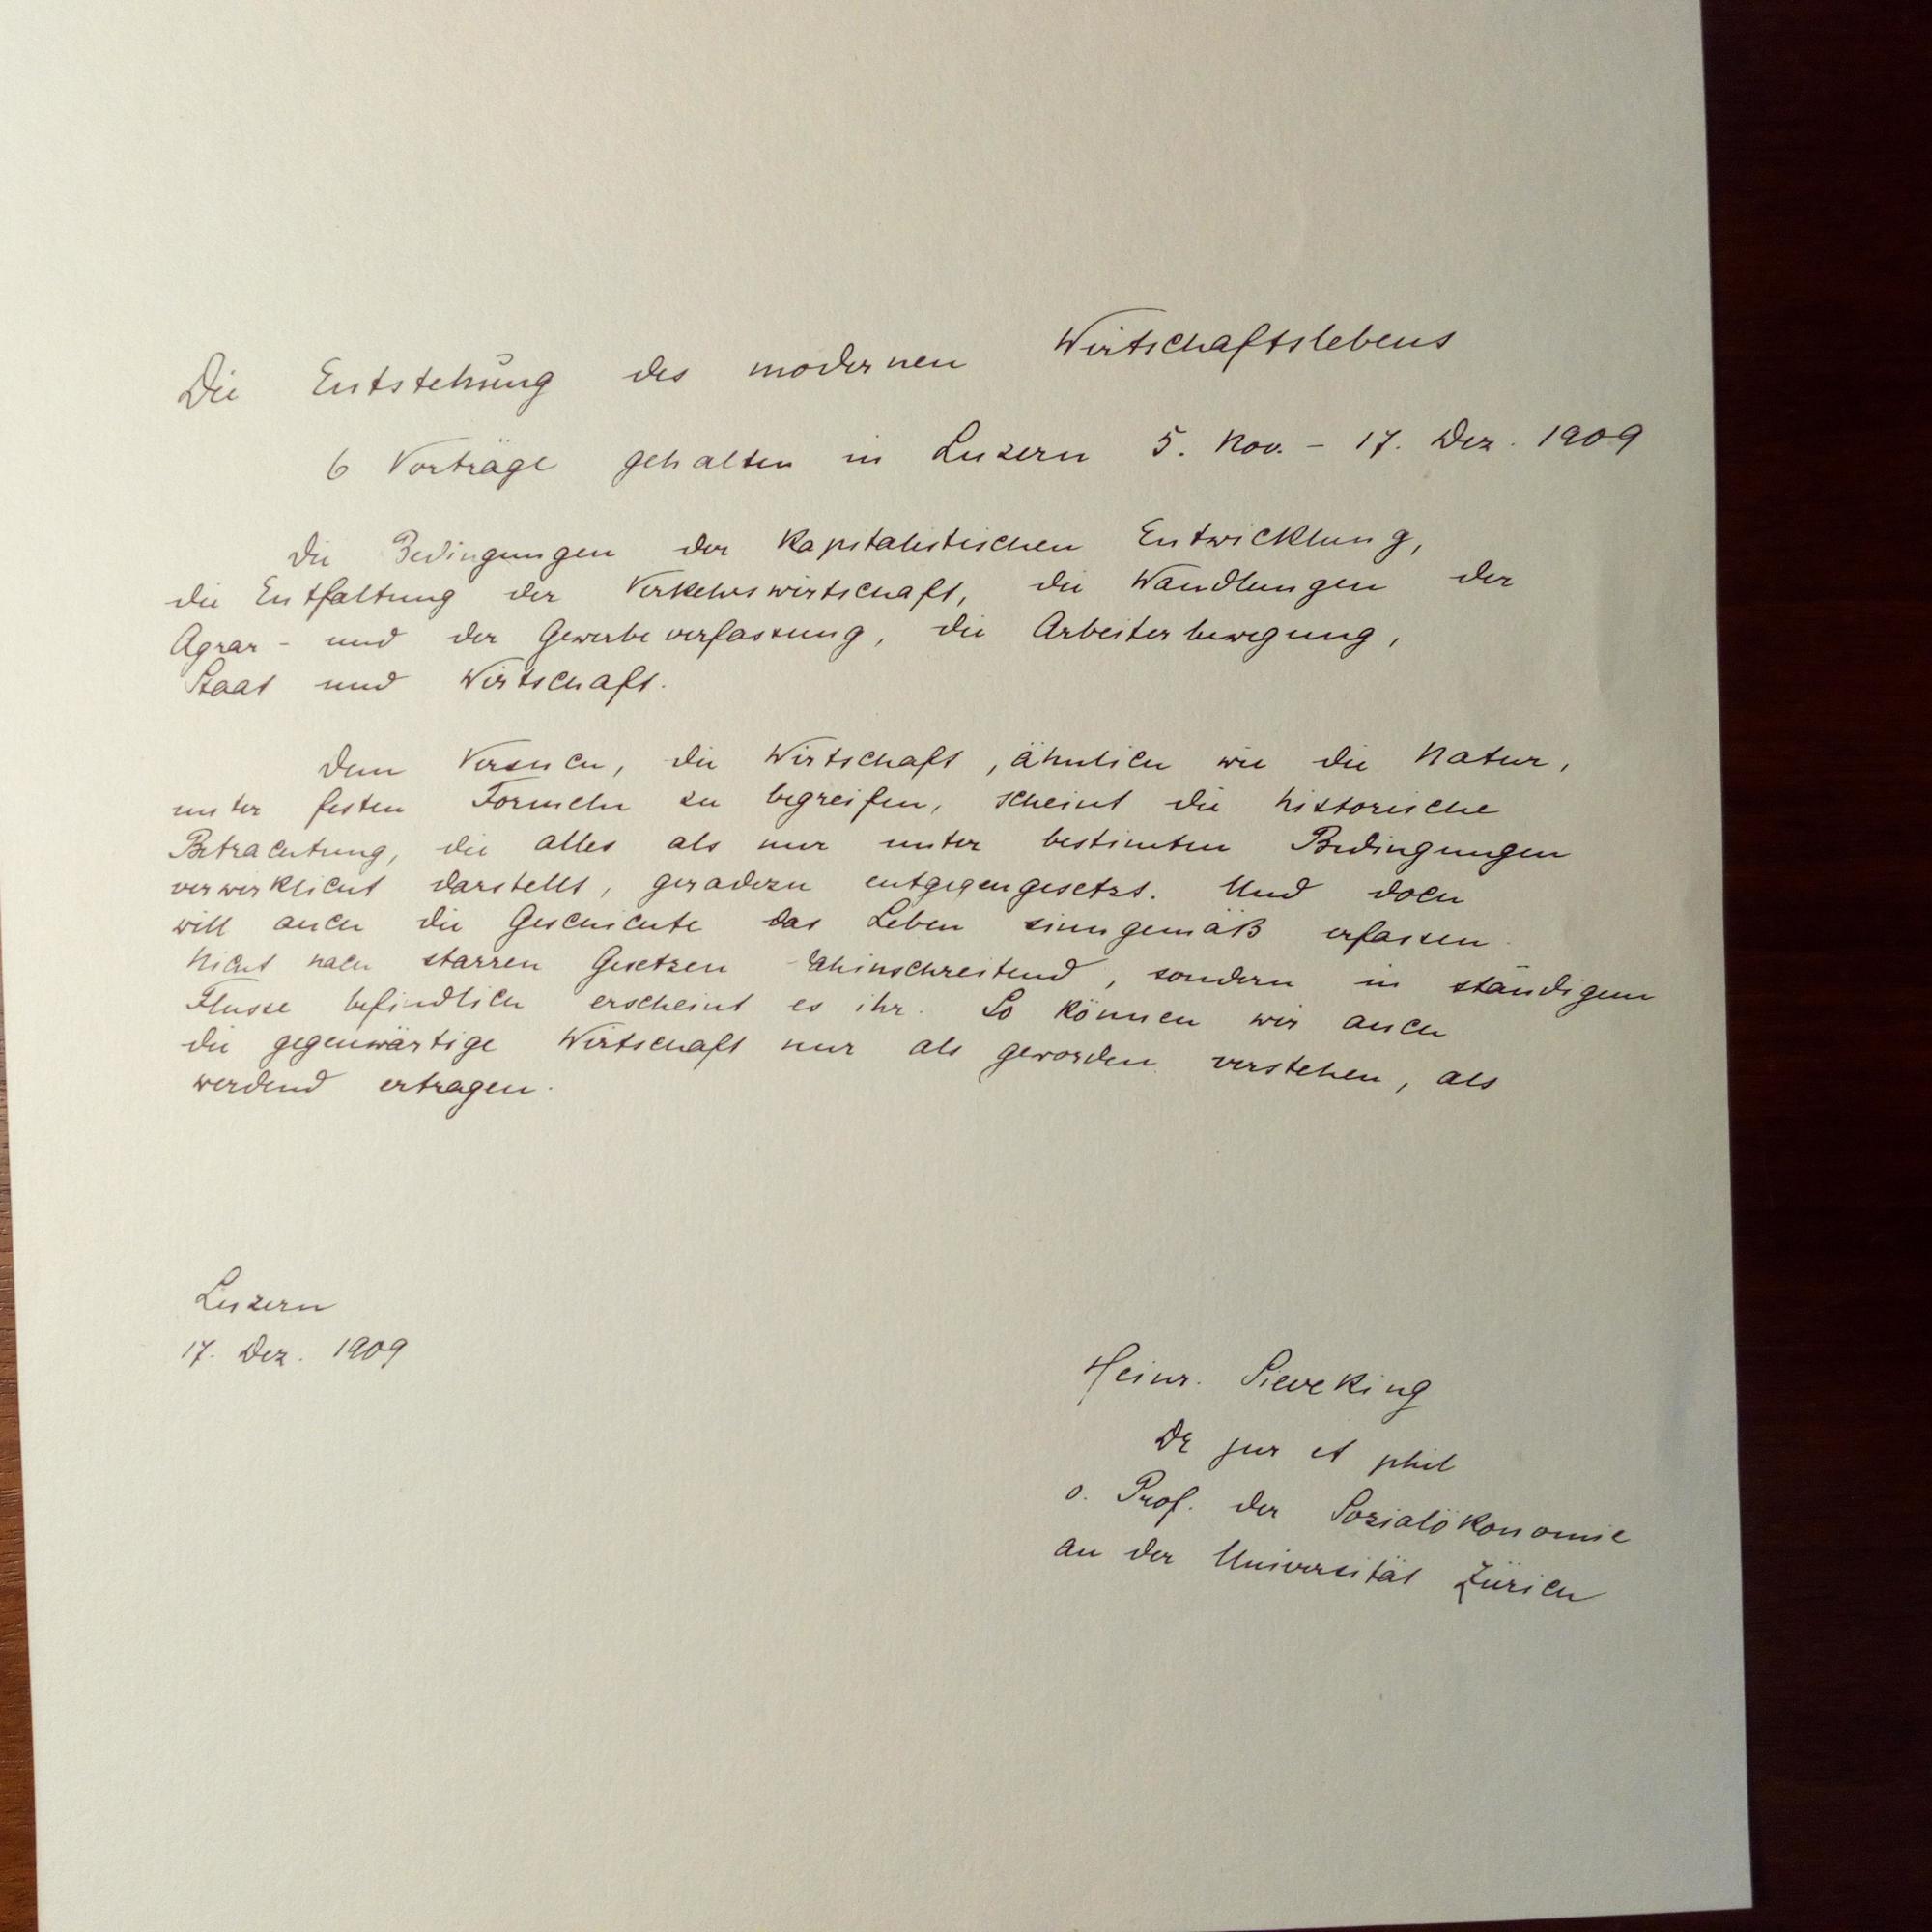 Die Entstehung des modernen Wirtschaftslebens
6 Vorträge gehalten in Luzern 5. Nov. – 17. Dez. 1909
Die Bedingungen der kapitalistischen Entwicklung,
die Entfaltung der Verkehrswirtschaft, die Wandlungen der
Agrar- und der Gewerbeverfassung, die Arbeiterbewegung,
Staat und Wirtschaft.
Dem Versuch, die Wirtschaft, ähnlich wie die Natur,
unter festen Formeln zu begreifen, scheint die historische
Betrachtung, die alles als nur unter bestimten Bedingungen
verwirklicht darstellt, geradezu entgegengesetzt. Und doch
will auch die Geschichte das Leben sinngemäß erfassen.
Nicht nach starren Gesetzen dahinschreitend, sondern in ständigem
Flusse befindlich erscheint es ihr. So können wir auch
die gegenwärtige Wirtschaft nur als geworden verstehen, als
werdend ertragen.
Luzern
17. Dez. 1909
Heinr. Sieveking
Dr jur et phil
o. Prof. der Sozialökonomie
an der Universität Zürich